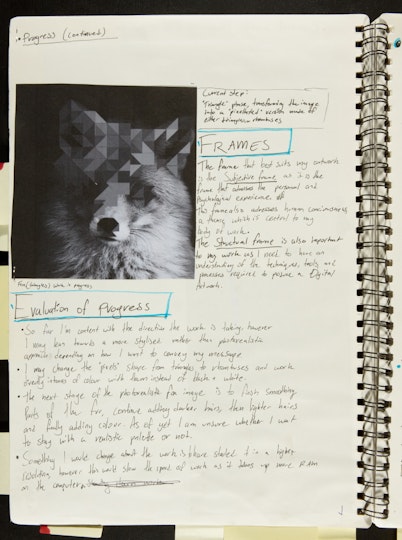 • Progress (continued)
Current step:
"Triangle" phase, transforming the image
into a "pixellated" version made of
either triangles or rhombuses
FRAMES
The frame that best suits my artwork
is the Subjective frame as it is the
frame that addresses the personal and
Psychological experience.
This frame also addresses human consciousness,
a theme which is central to my
body of work.
The Structural frame is also important
to my work as I need to have an
understanding of the techniques, tools and
processes required to produce a Digital
Artwork.
Fox (triangles) work in progress
Evaluation of Progress
• So far I'm content with the direction the work is taking, however
I may lean towards a more stylised rather than photorealistic
depending on how I want to convey my message
• I may change the 'pixels' shape from triangles to rhombuses and work
overlay items of colour with them instead of black & white.
• The next stage of the photorealistic fox image is to finish smoothing
Parts of the fur, continue adding darker hairs, then lighter hairs
and finally adding colour. As of yet I am unsure whether I want
to stay with a realistic palette or not.
• Something I would change about the work is to have started it in a higher
resolution, however this would slow the speed of work as it takes up more RAM
on the computer